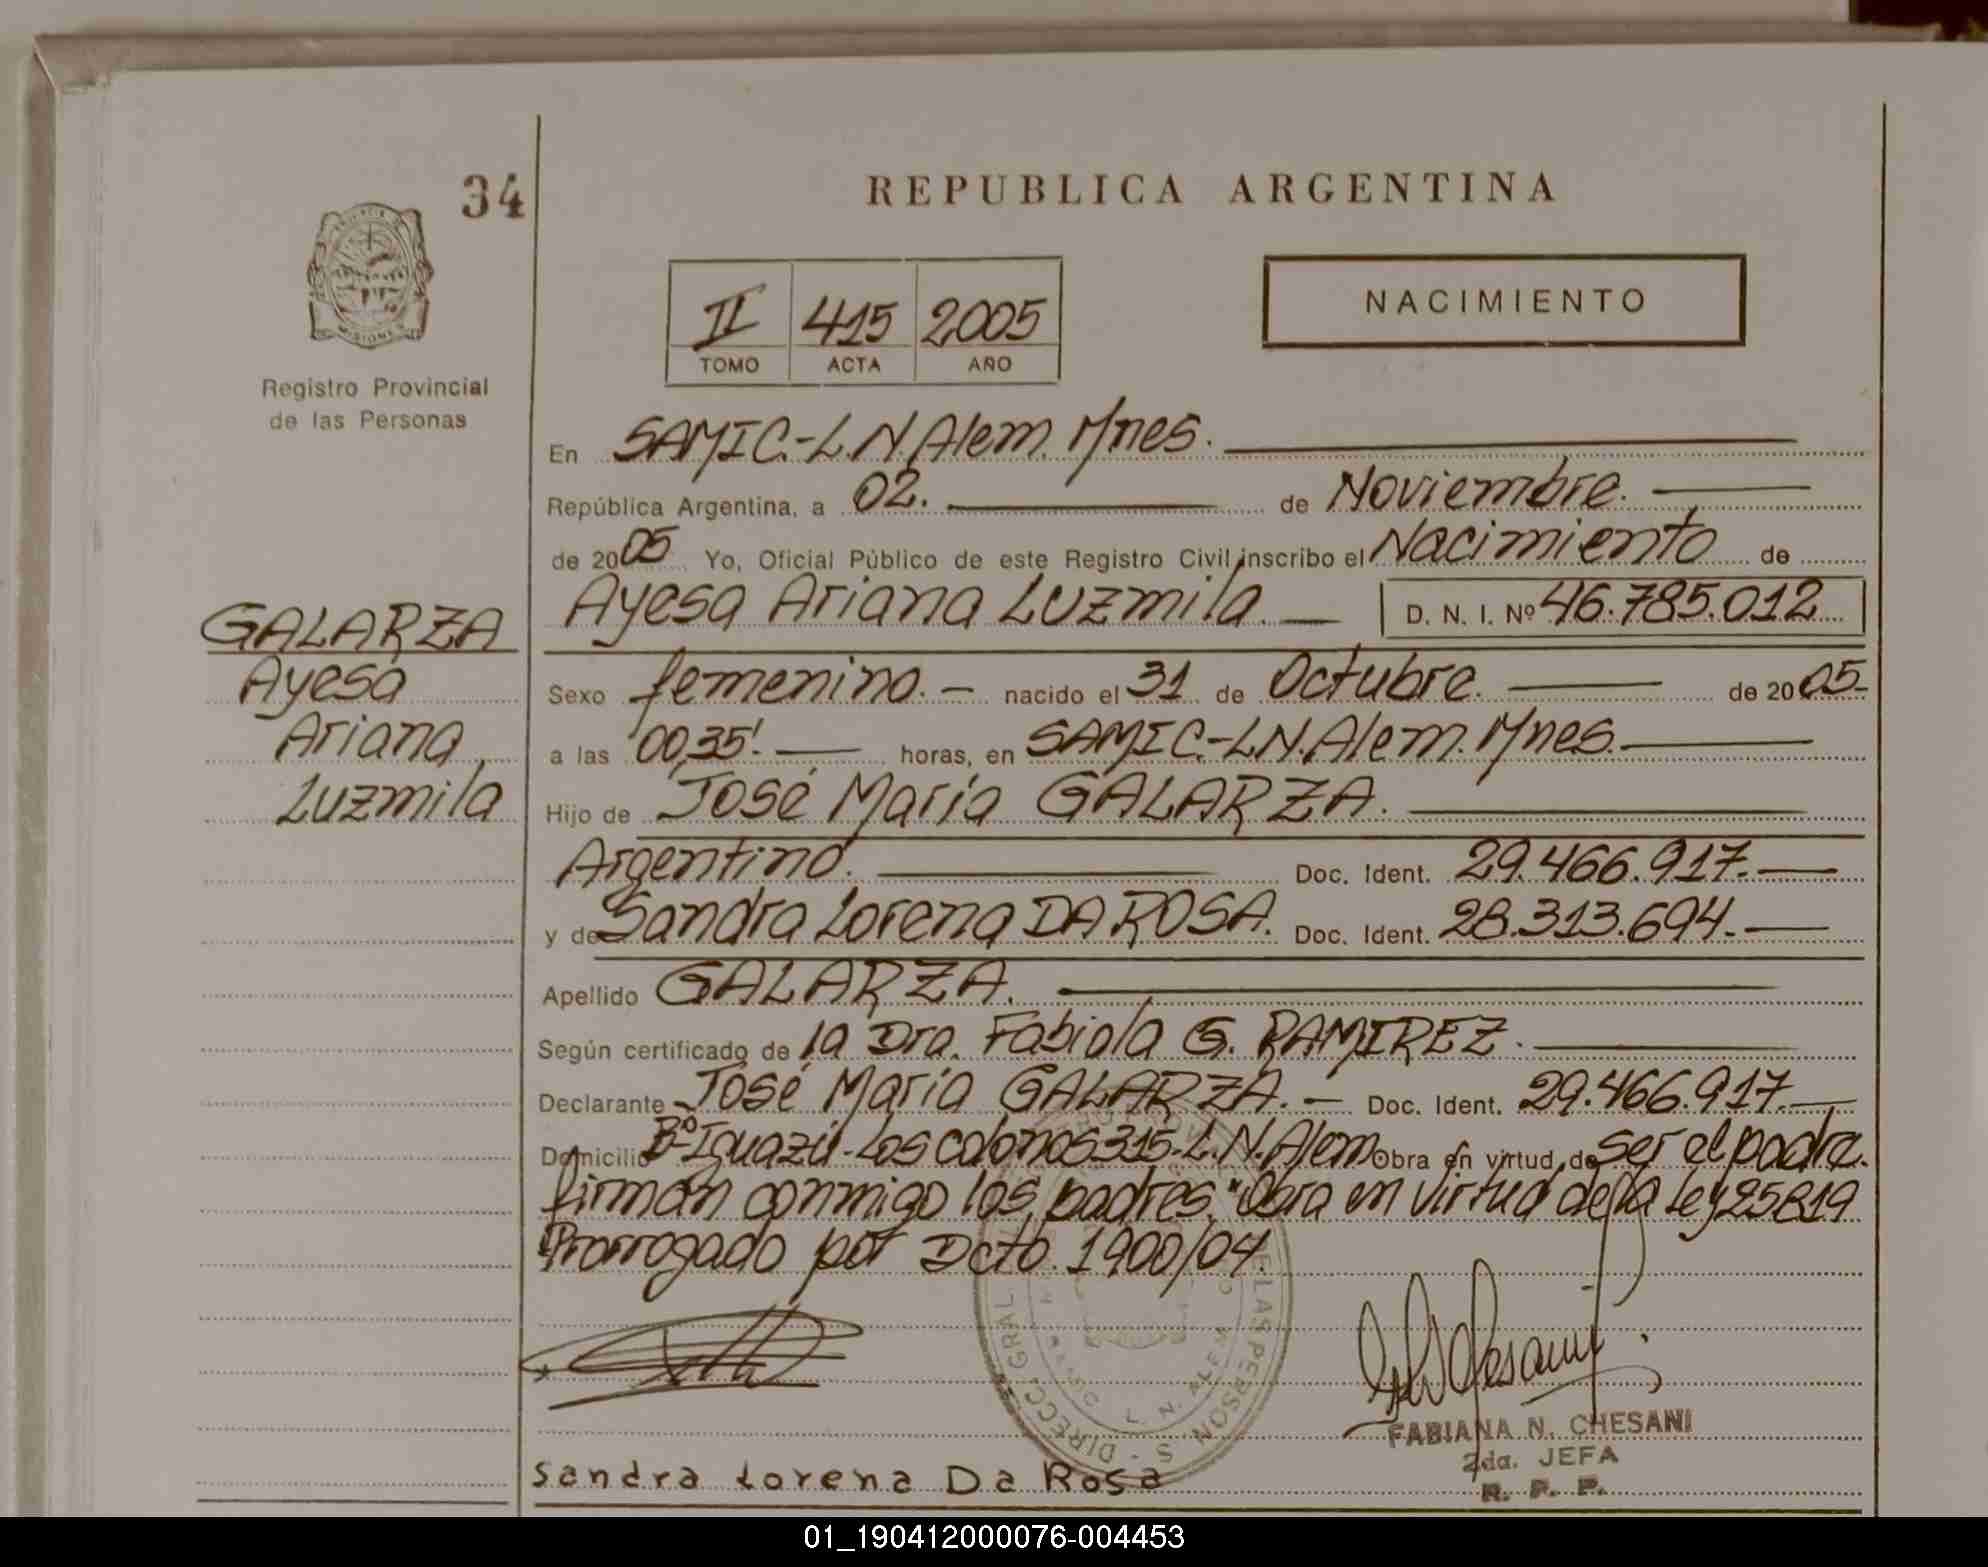 34
REPUBLICA ARGENTINA
II 415 2005
TOMO ACTA AÑO
NACIMIENTO
MISIONES
Registro Provincial
de las Personas
En SAMIC.-L.N.Alem. Mnes.
República Argentina, a 02. de Noviembre.
de 2005 Yo, Oficial Público de este Registro Civil inscribo el Nacimiento de
Ayesa Ariana Luzmila. D. N. I. Nº 46.785.012
GALARZA
Ayesa
Ariana
Luzmila
Sexo femenino. nacido el 31 de Octubre. de 2005-
a las 00,35'. horas, en SAMIC.-L.N.Alem. Mnes.
Hijo de José María GALARZA.
Argentino. Doc. Ident. 29.466.917.-
y de Sandra Lorena DA ROSA. Doc. Ident. 28.313.694.-
Apellido GALARZA.
Según certificado de la Dra. Fabiola G. RAMIREZ.
Declarante José María GALARZA.- Doc. Ident. 29.466.917.-
Domicilio Bº Iguazú-Los colonos 315-L.N.Alem Obra en virtud de ser el padre.
firman conmigo los padres. "Obra en virtud de la Ley 25819
Prorrogado por Dcto. 1900/04.
DIRECC. GRAL DE LAS PERSONAS
L. N. ALEM
FABIANA N. CHESANI
2da. JEFA
R. P. P.
Sandra Lorena Da Rosa
01_190412000076-004453